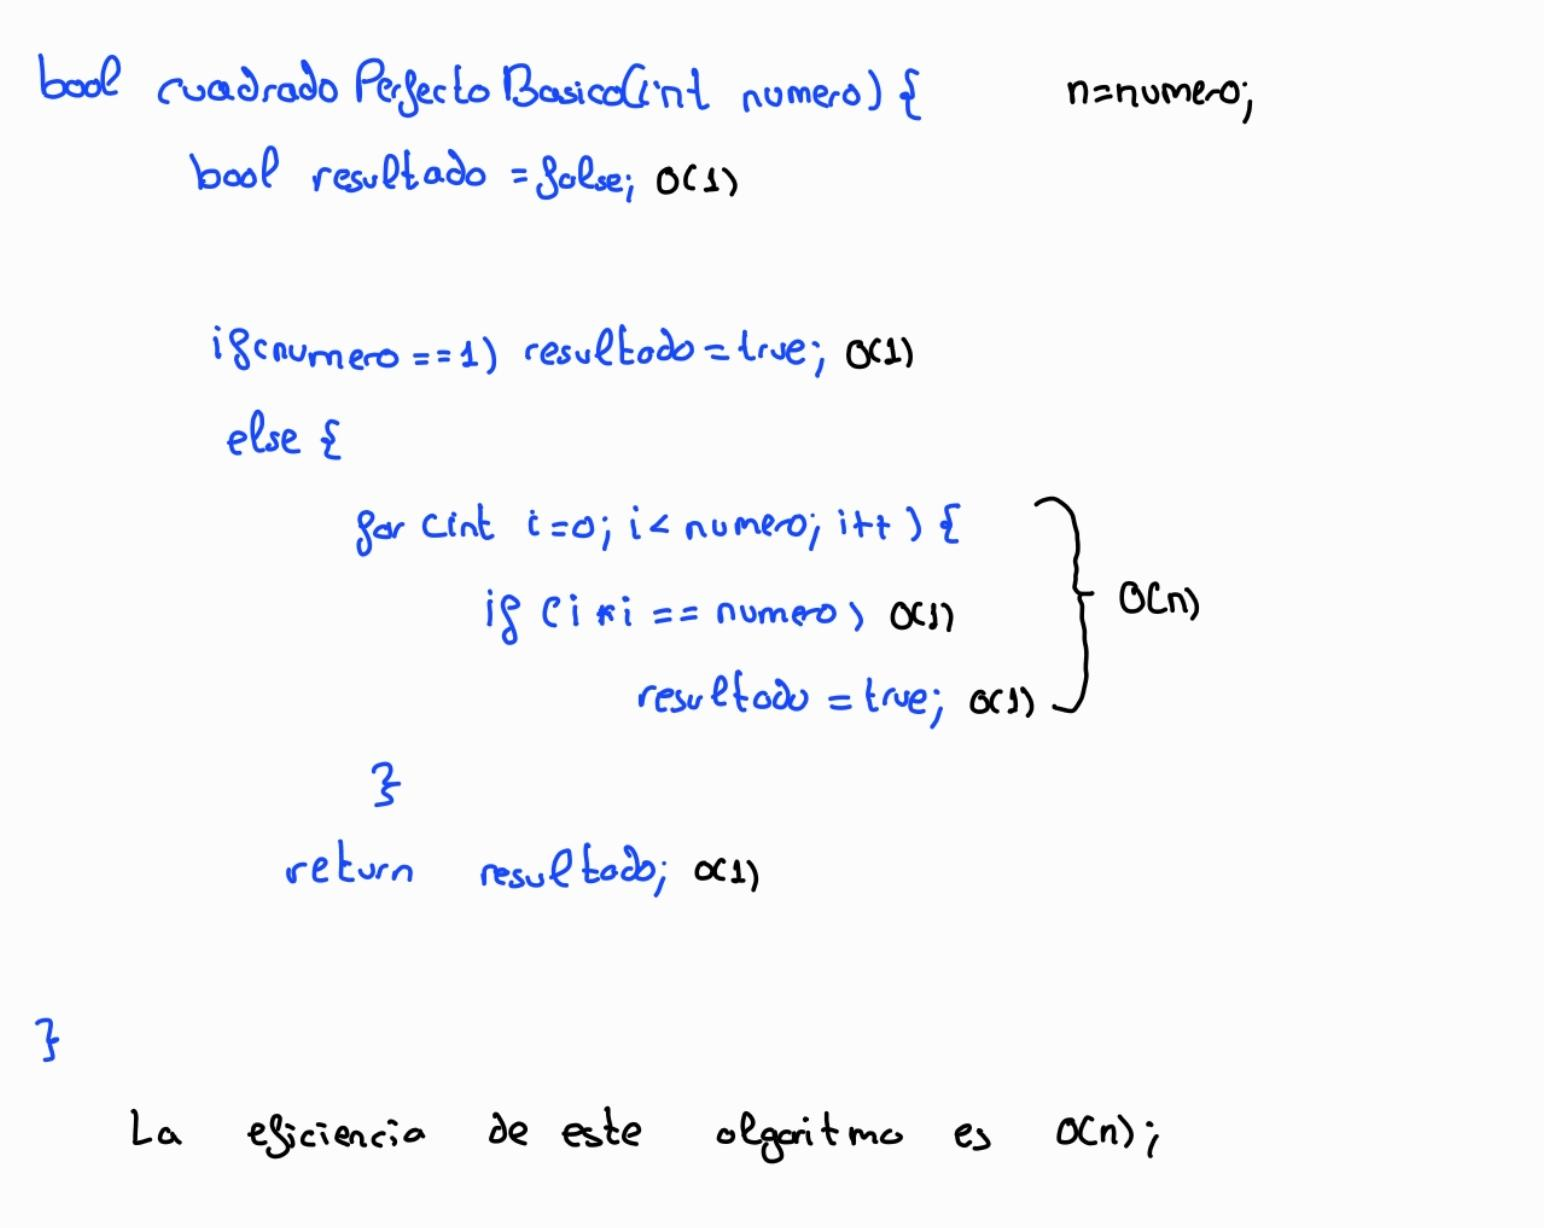 bool cuadradoPerfectoBasico(int numero) { n=numero;
bool resultado = false; O(1)
if(numero==1) resultado=true; O(1)
else {
for (int i=0; i< numero; i++ ) {
if (i*i == numero) O(1)
resultado = true; O(1)
O(n)
}
return resultado; O(1)
}
La eficiencia de este algoritmo es O(n);